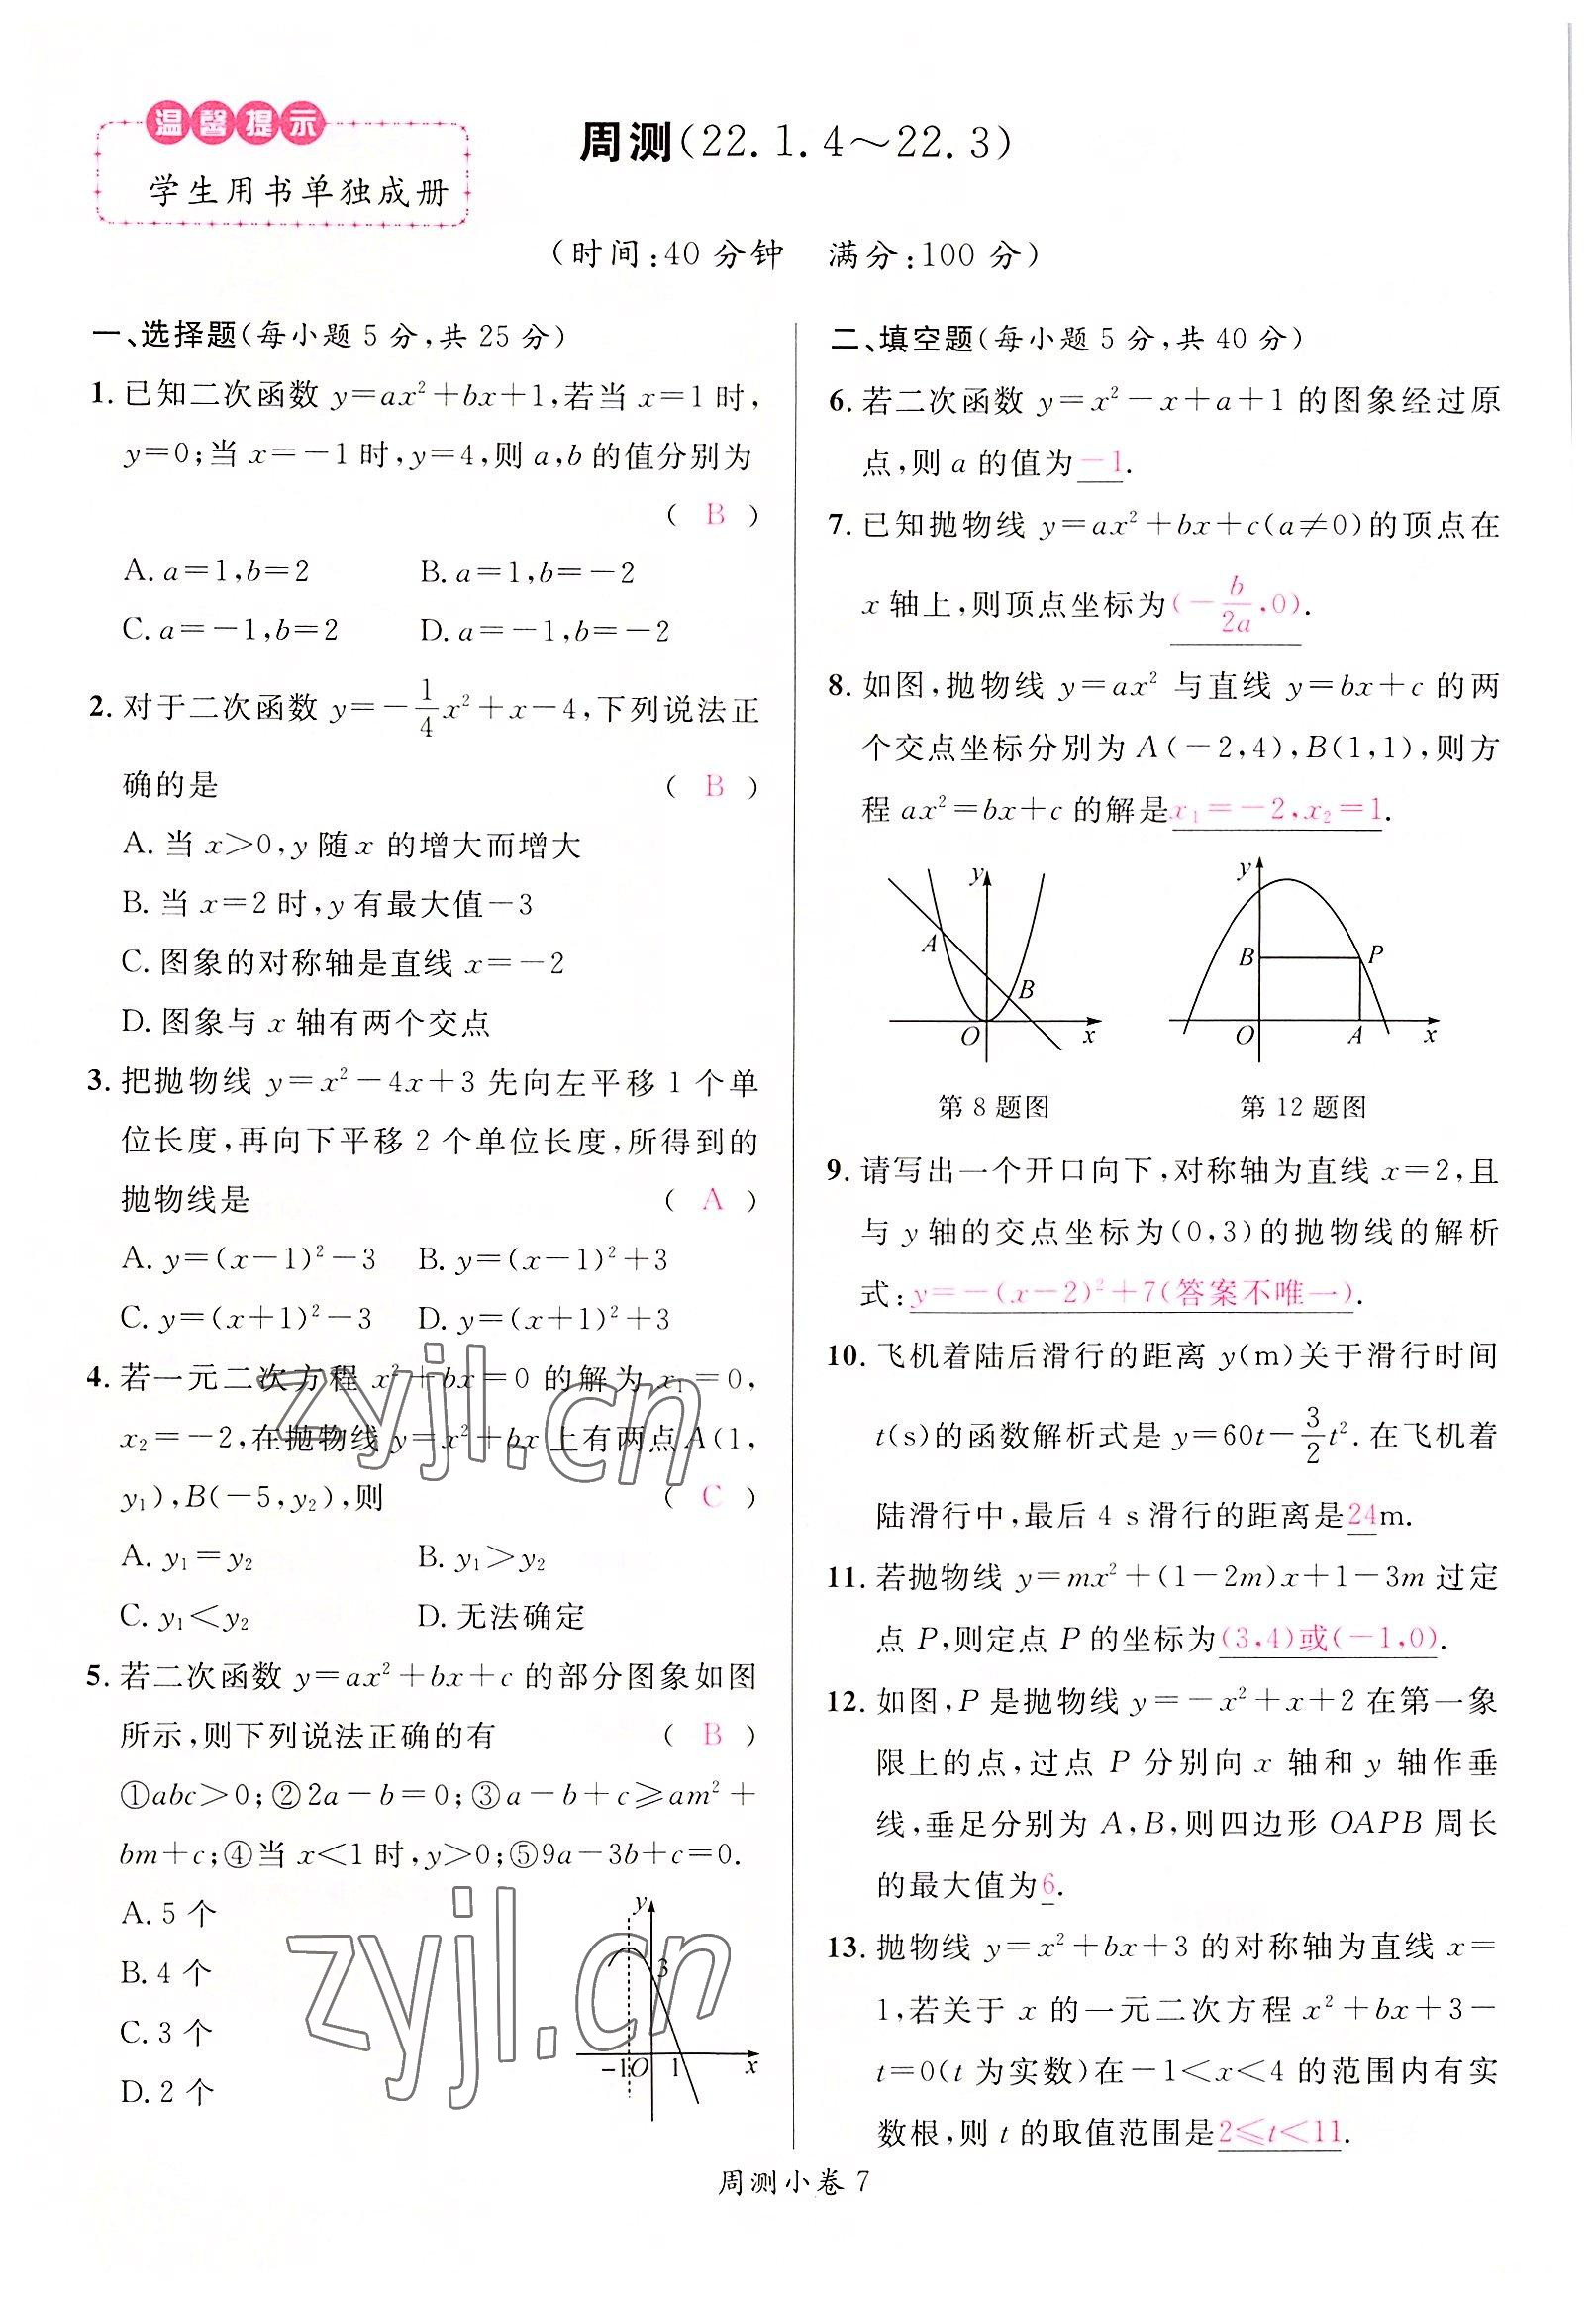 温馨提示
学生用书单独成册
周测(22.1.4～22.3)
(时间:40分钟 满分:100分)
一、选择题(每小题5分,共25分)
1. 已知二次函数 y=ax²+bx+1,若当 x=1 时,
y=0;当 x=-1 时,y=4,则 a,b 的值分别为
( B )
A. a=1,b=2 B. a=1,b=-2
C. a=-1,b=2 D. a=-1,b=-2
2. 对于二次函数 y=-1/4x²+x-4,下列说法正
确的是 ( B )
A. 当 x>0,y 随 x 的增大而增大
B. 当 x=2 时,y 有最大值-3
C. 图象的对称轴是直线 x=-2
D. 图象与 x 轴有两个交点
3. 把抛物线 y=x²-4x+3 先向左平移 1 个单
位长度,再向下平移 2 个单位长度,所得到的
抛物线是 ( A )
A. y=(x-1)²-3 B. y=(x-1)²+3
C. y=(x+1)²-3 D. y=(x+1)²+3
4. 若一元二次方程 x²+bx=0 的解为 x₁=0,
x₂=-2,在抛物线 y=x²+bx 上有两点A(1,
y₁),B(-5,y₂),则 ( C )
A. y₁=y₂ B. y₁>y₂
C. y₁<y₂ D. 无法确定
5. 若二次函数 y=ax²+bx+c 的部分图象如图
所示,则下列说法正确的有 ( B )
①abc>0;②2a-b=0;③a-b+c≥am²+
bm+c;④当 x<1 时,y>0;⑤9a-3b+c=0.
A. 5 个
B. 4 个
C. 3 个
D. 2 个
y
3
-1 O 1 x
zyjl.cn
zyjl.cn
二、填空题(每小题5分,共40分)
6. 若二次函数 y=x²-x+a+1 的图象经过原
点,则 a 的值为 -1.
7. 已知抛物线 y=ax²+bx+c(a≠0)的顶点在
x 轴上,则顶点坐标为(-b/2a,0).
8. 如图,抛物线 y=ax² 与直线 y=bx+c 的两
个交点坐标分别为 A(-2,4),B(1,1),则方
程 ax²=bx+c 的解是x₁=-2,x₂=1.
y
A
B
O x
第 8 题图
y
B P
O A x
第 12 题图
9. 请写出一个开口向下,对称轴为直线 x=2,且
与 y 轴的交点坐标为(0,3)的抛物线的解析
式:y=-(x-2)²+7(答案不唯一).
10. 飞机着陆后滑行的距离 y(m)关于滑行时间
t(s)的函数解析式是 y=60t-3/2t².在飞机着
陆滑行中,最后 4 s 滑行的距离是24m.
11. 若抛物线 y=mx²+(1-2m)x+1-3m 过定
点 P,则定点 P 的坐标为(3,4)或(-1,0).
12. 如图,P 是抛物线 y=-x²+x+2 在第一象
限上的点,过点 P 分别向 x 轴和 y 轴作垂
线,垂足分别为 A,B,则四边形 OAPB 周长
的最大值为6.
13. 抛物线 y=x²+bx+3 的对称轴为直线 x=
1,若关于 x 的一元二次方程 x²+bx+3-
t=0(t 为实数)在-1<x<4 的范围内有实
数根,则 t 的取值范围是2≤t<11.
周测小卷 7